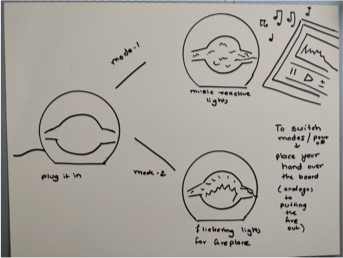 mode-1
music reactive
lights
plug it in
mode-2
flickering lights
for fireplace
To switch
modes/power
off
place your
hand over
the board
(analogus
to
putting
the
fire
out)